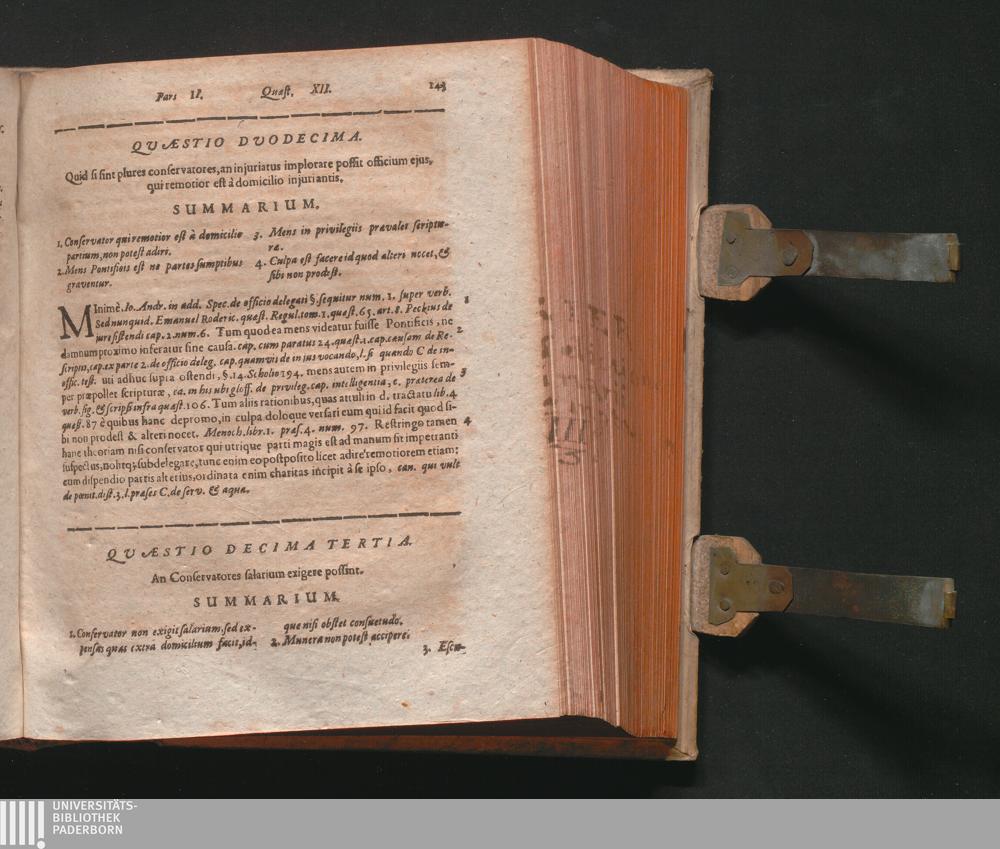 Pars II. Quæst. XII. 143
QVÆSTIO DVODECIMA.
Quid si sint plures conservatores, an injuriatus implorare possit officium ejus,
qui remotior est à domicilio injuriantis.
SUMMARIUM.
1. Conservator qui remotior est à domicilio
partium, non potest adiri.
2. Mens Pontificis est ne partes sumptibus
graventur.
3. Mens in privilegiis prævalet scriptu-
ræ.
4. Culpa est facere id quod alteri nocet, &
sibi non prodest.
MInimè. Io. Andr. in add. Spec. de officio delegati §. sequitur num. 1. super verb. 1
Sed nunquid. Emanuel Roderic. quæst. Regul. tom. 1. quæst. 65. art. 8. Peckius de
jure sistendi cap. 2. num. 6. Tum quod ea mens videatur fuisse Pontificis, ne 2
damnum proximo inferatur sine causa. cap. cum paratus 24. quæst. 1. cap. causam de Re-
scriptis, cap. ex parte 2. de officio deleg. cap. quamvis de in jus vocando, l. si quando C de in-
offic. test. uti adhuc supra ostendi, §. 14. Scholio 194. mens autem in privilegiis sem- 3
per præpollet scripturæ, ca. in his ubi gloss. de privileg. cap. intelligentia, c. præterea de
verb. sig. & scripsi infra quæst. 106. Tum aliis rationibus, quas attuli in d. tractatu lib. 4
quæst. 87 è quibus hanc depromo, in culpa doloque versari eum qui id facit quod si-
bi non prodest & alteri nocet. Menoch. libr. 1. præs. 4. num. 97. Restringo tamen 4
hanc theoriam nisi conservator qui utrique parti magis est ad manum sit impetranti
suspectus, nolitq; subdelegare, tunc enim eo postposito licet adire remotiorem etiam;
cum dispendio partis alterius, ordinata enim charitas incipit à se ipso, can. qui vult
de pœnit. dist. 3. l. præses C. de serv. & aqua.
QVÆSTIO DECIMA TERTIA.
An Conservatores salarium exigere possint.
SUMMARIUM.
1. Conservator non exigit salarium, sed ex-
pensas quas extra domicilium facit, id-
que nisi obstet consuetudo.
2. Munera non potest accipere;
3. Escu-
UNIVERSITÄTS-
BIBLIOTHEK
PADERBORN